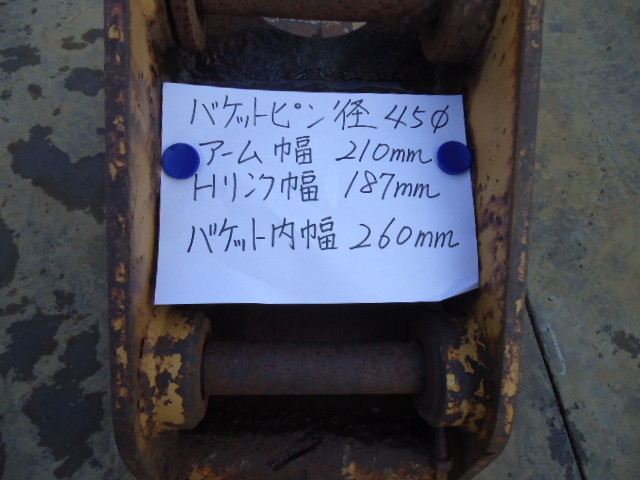 バケットピン径 45φ
アーム幅 210mm
Hリンク幅 187mm
バケット内幅 260mm